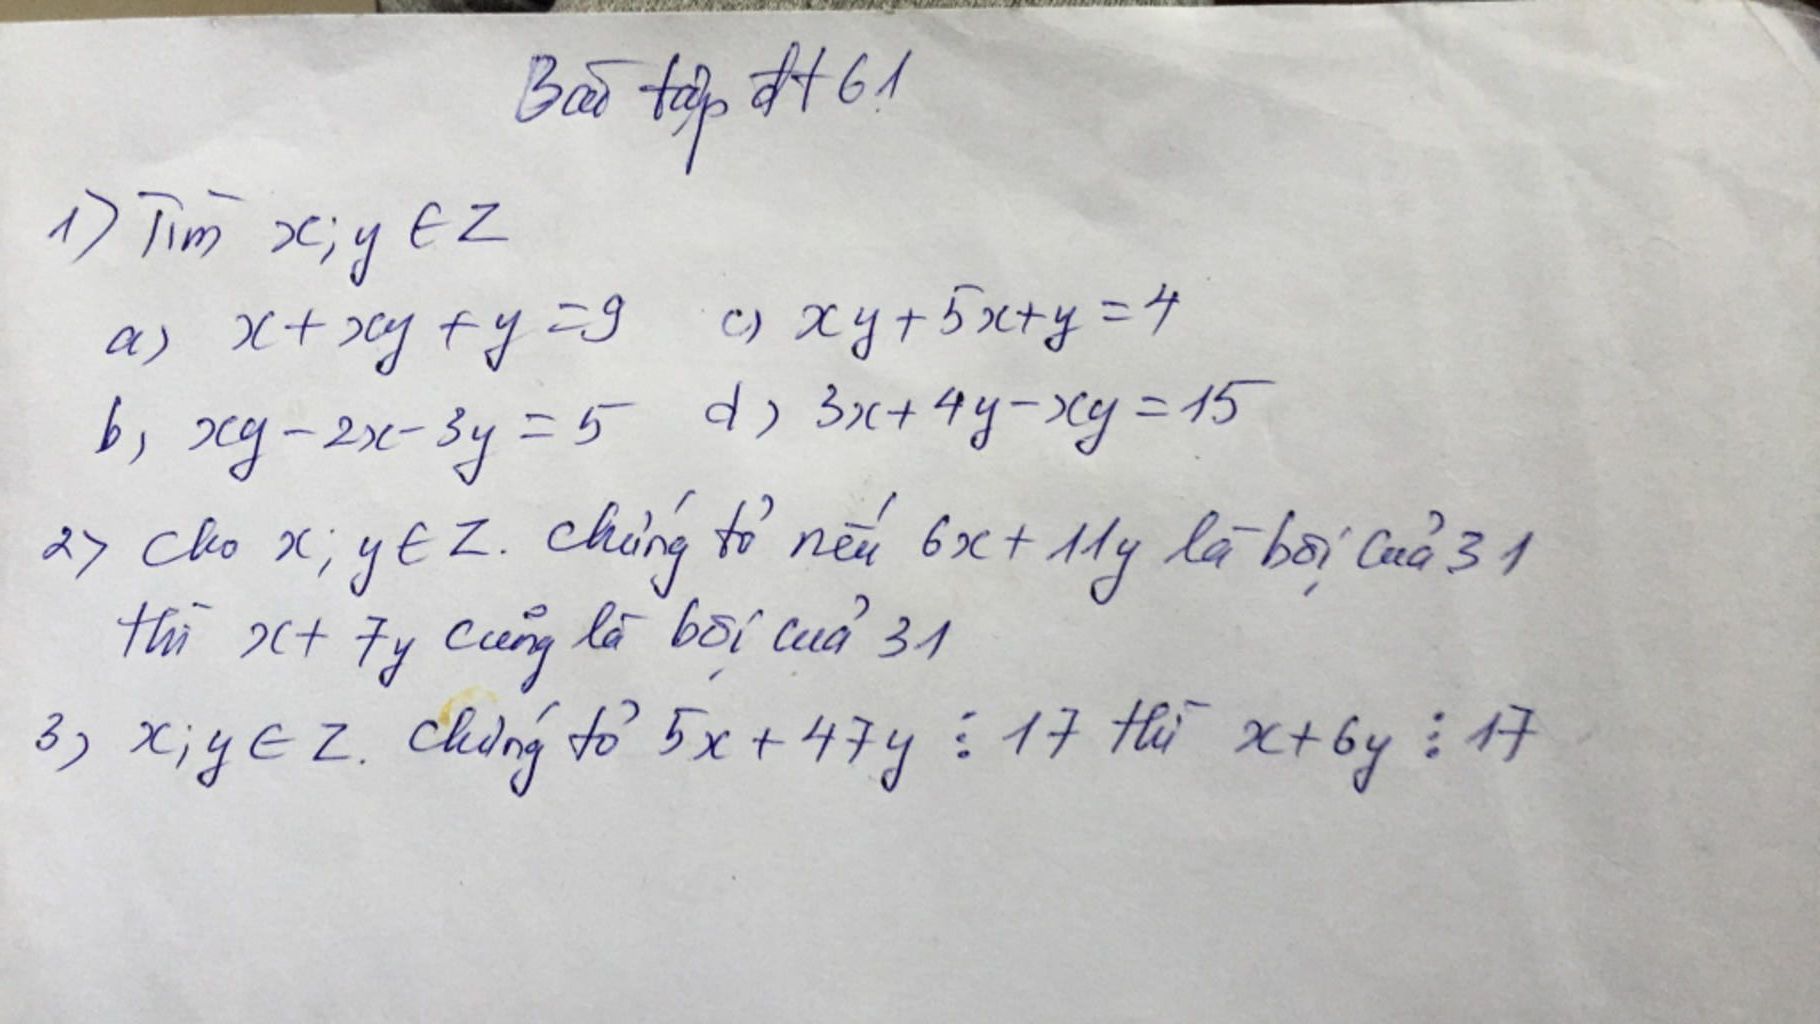 Bài tập đt 61
1) Tìm x; y ∈ Z
a) x + xy + y = 9 c) xy + 5x + y = 4
b) xy - 2x - 3y = 5 d) 3x + 4y - xy = 15
2) Cho x; y ∈ Z. Chứng tỏ nếu 6x + 11y là bội của 31
thì x + 7y cũng là bội của 31
3) x; y ∈ Z. Chứng tỏ 5x + 47y ⋮ 17 thì x + 6y ⋮ 17